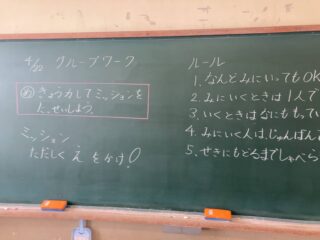 4/22 グループワーク
め きょう力してミッションを
たっせいしよう。
ミッション
ただしく え をかけ!
ルール
1. なんどみにいってもOK
2. みにいくときは1人で
3. いくときはなにももってい
4. みにいく人は、じゅんばんで
5. せきにもどるまでしゃべら